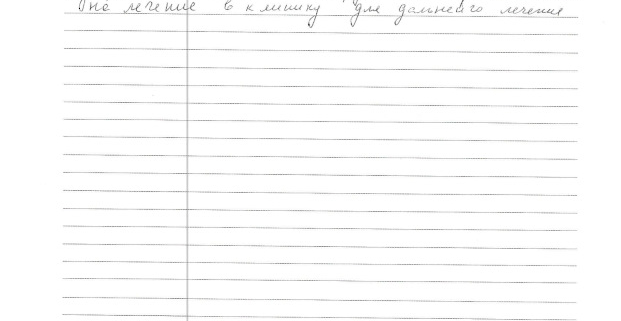 на лечение в клинику для дальнейго лечения